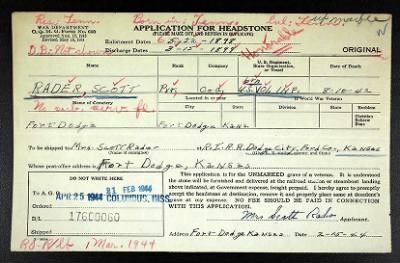 Res. Tenn. Born in: Tenn.
WAR DEPARTMENT
O.Q.M.G. Form No. 623
APPLICATION FOR HEADSTONE
(PLEASE MAKE OUT AND RETURN IN DUPLICATE)
Enlistment Dates 5-22-1898
Honorable
ORIGINAL
3-15-1899
Name Rank Co. U. S. Regiment, State Organization, or Vessel
RADER, SCOTT Pvt. Co D, 6th US VOL INF. 8-18-42
Name of Cemetery If World War Veteran
Fort Dodge Fort Dodge Kans
To be shipped to Mrs. Scott Rader R.R. Dodge City, Ford Co, Kansas
Whose post-office address is Fort Dodge, Kansas
DO NOT WRITE HERE
This application is for the UNMARKED grave of a veteran. It is understood
the stone will be furnished and delivered at the railroad station or steamboat landing
above indicated, at Government expense, freight prepaid. I hereby agree to promptly
accept the headstone at destination, remove it and properly place same at decedent's
grave at my expense. NO FEE SHOULD BE PAID IN CONNECTION
WITH THIS APPLICATION.
To A. G. O.
21 FEB 1944
APR 25 1944 COLUMBUS, MISS.
17600060
Mrs Scott Rader Applicant.
1 Mar. 1944
Address Fort Dodge Kansas 2-15-44